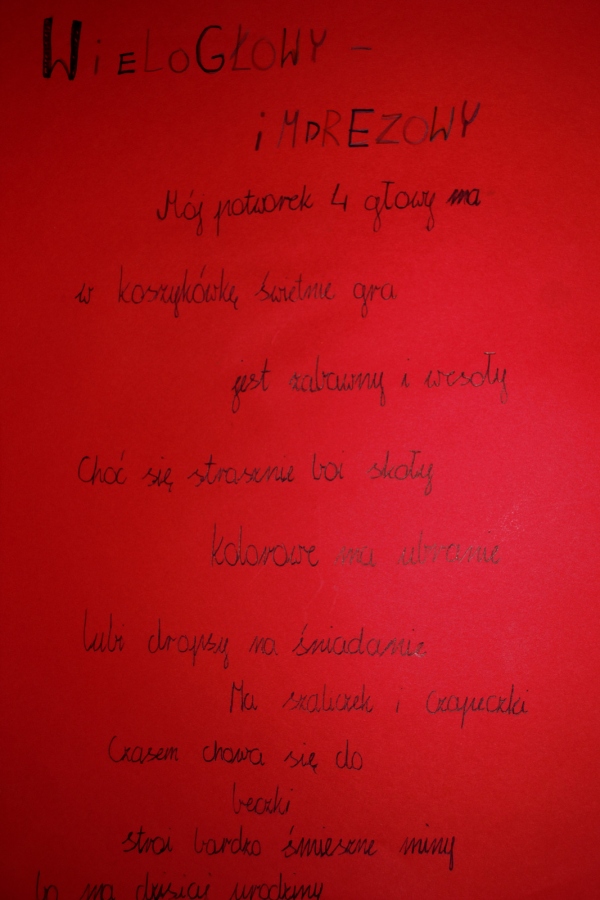 WieloGŁOWY –
iMDREZOWY
Mój potworek 4 głowy ma
w koszykówkę świetnie gra
jest zabawny i wesoły
Choć się strasznie boi skoły
Kolorowe ma ubranie
lubi dropsy na śniadanie
Ma szaliczek i czapeczki
Czasem chowa się do
beczki
stroi bardzo śmieszne miny
bo ma dzisiaj urodziny